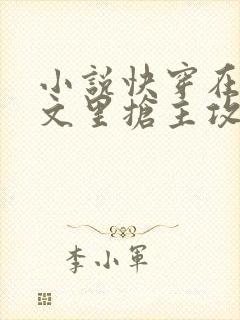 小說快穿在
文里搶主攻
李小軍